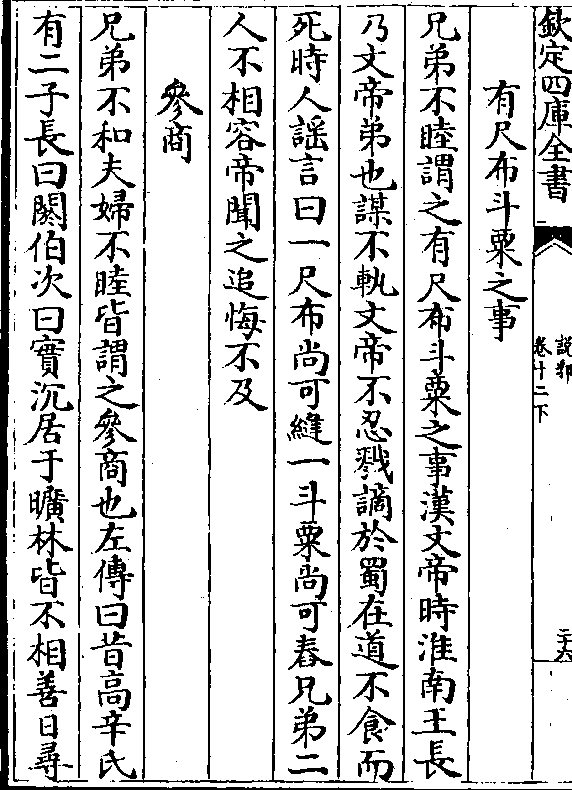 欽定四庫全書
說郛
卷十二下
二十六
有尺布斗粟之事
兄弟不睦謂之有尺布斗粟之事漢文帝時淮南王長
乃文帝弟也謀不軌文帝不忍戮謫於蜀在道不食而
死時人謡言曰一尺布尚可縫一斗粟尚可舂兄弟二
人不相容帝聞之追悔不及
參商
兄弟不和夫婦不睦皆謂之參商也左傳曰昔高辛氏
有二子長曰閼伯次曰實沉居于曠林皆不相善日尋